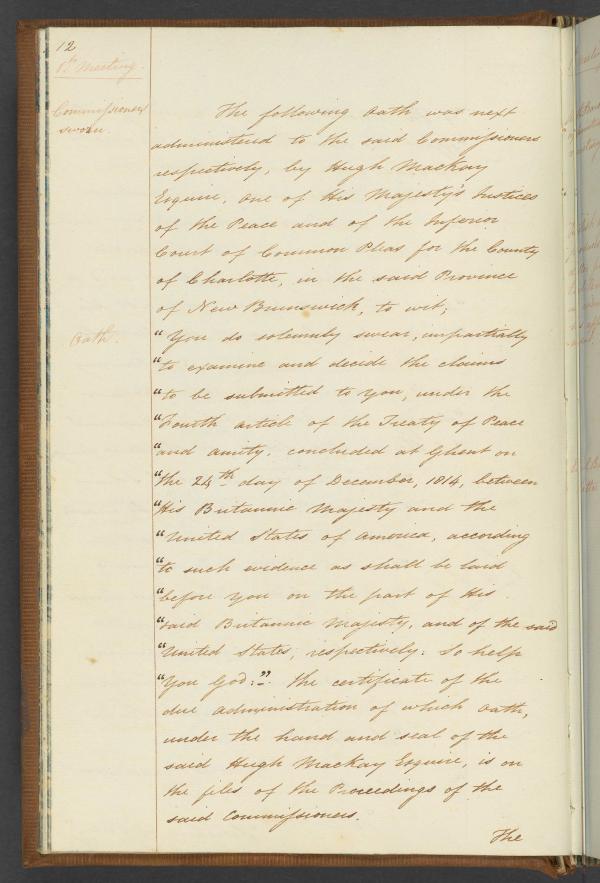 12
1st Meeting.
Commissioners
sworn.
The following Oath was next
administered to the said Commissioners
respectively, by Hugh Mackay
Esquire, One of His Majesty's Justices
of the Peace and of the Inferior
Court of Common Pleas for the County
of Charlotte, in the said Province
of New Brunswick, to wit;
Oath.
"You do solemnly swear, impartially
"to examine and decide the claims
"to be submitted to you, under the
"Fourth article of the Treaty of Peace
"and amity, concluded at Ghent on
"the 24th day of December, 1814, between
"His Britannic Majesty and the
"United States of America, according
"to such evidence as shall be laid
"before you on the part of His
"said Britannic Majesty, and of the said
"United States, respectively: So help
"You God:" The certificate of the
due administration of which Oath,
under the hand and seal of the
said Hugh Mackay Esquire, is on
the files of the Proceedings of the
said Commissioners.
The